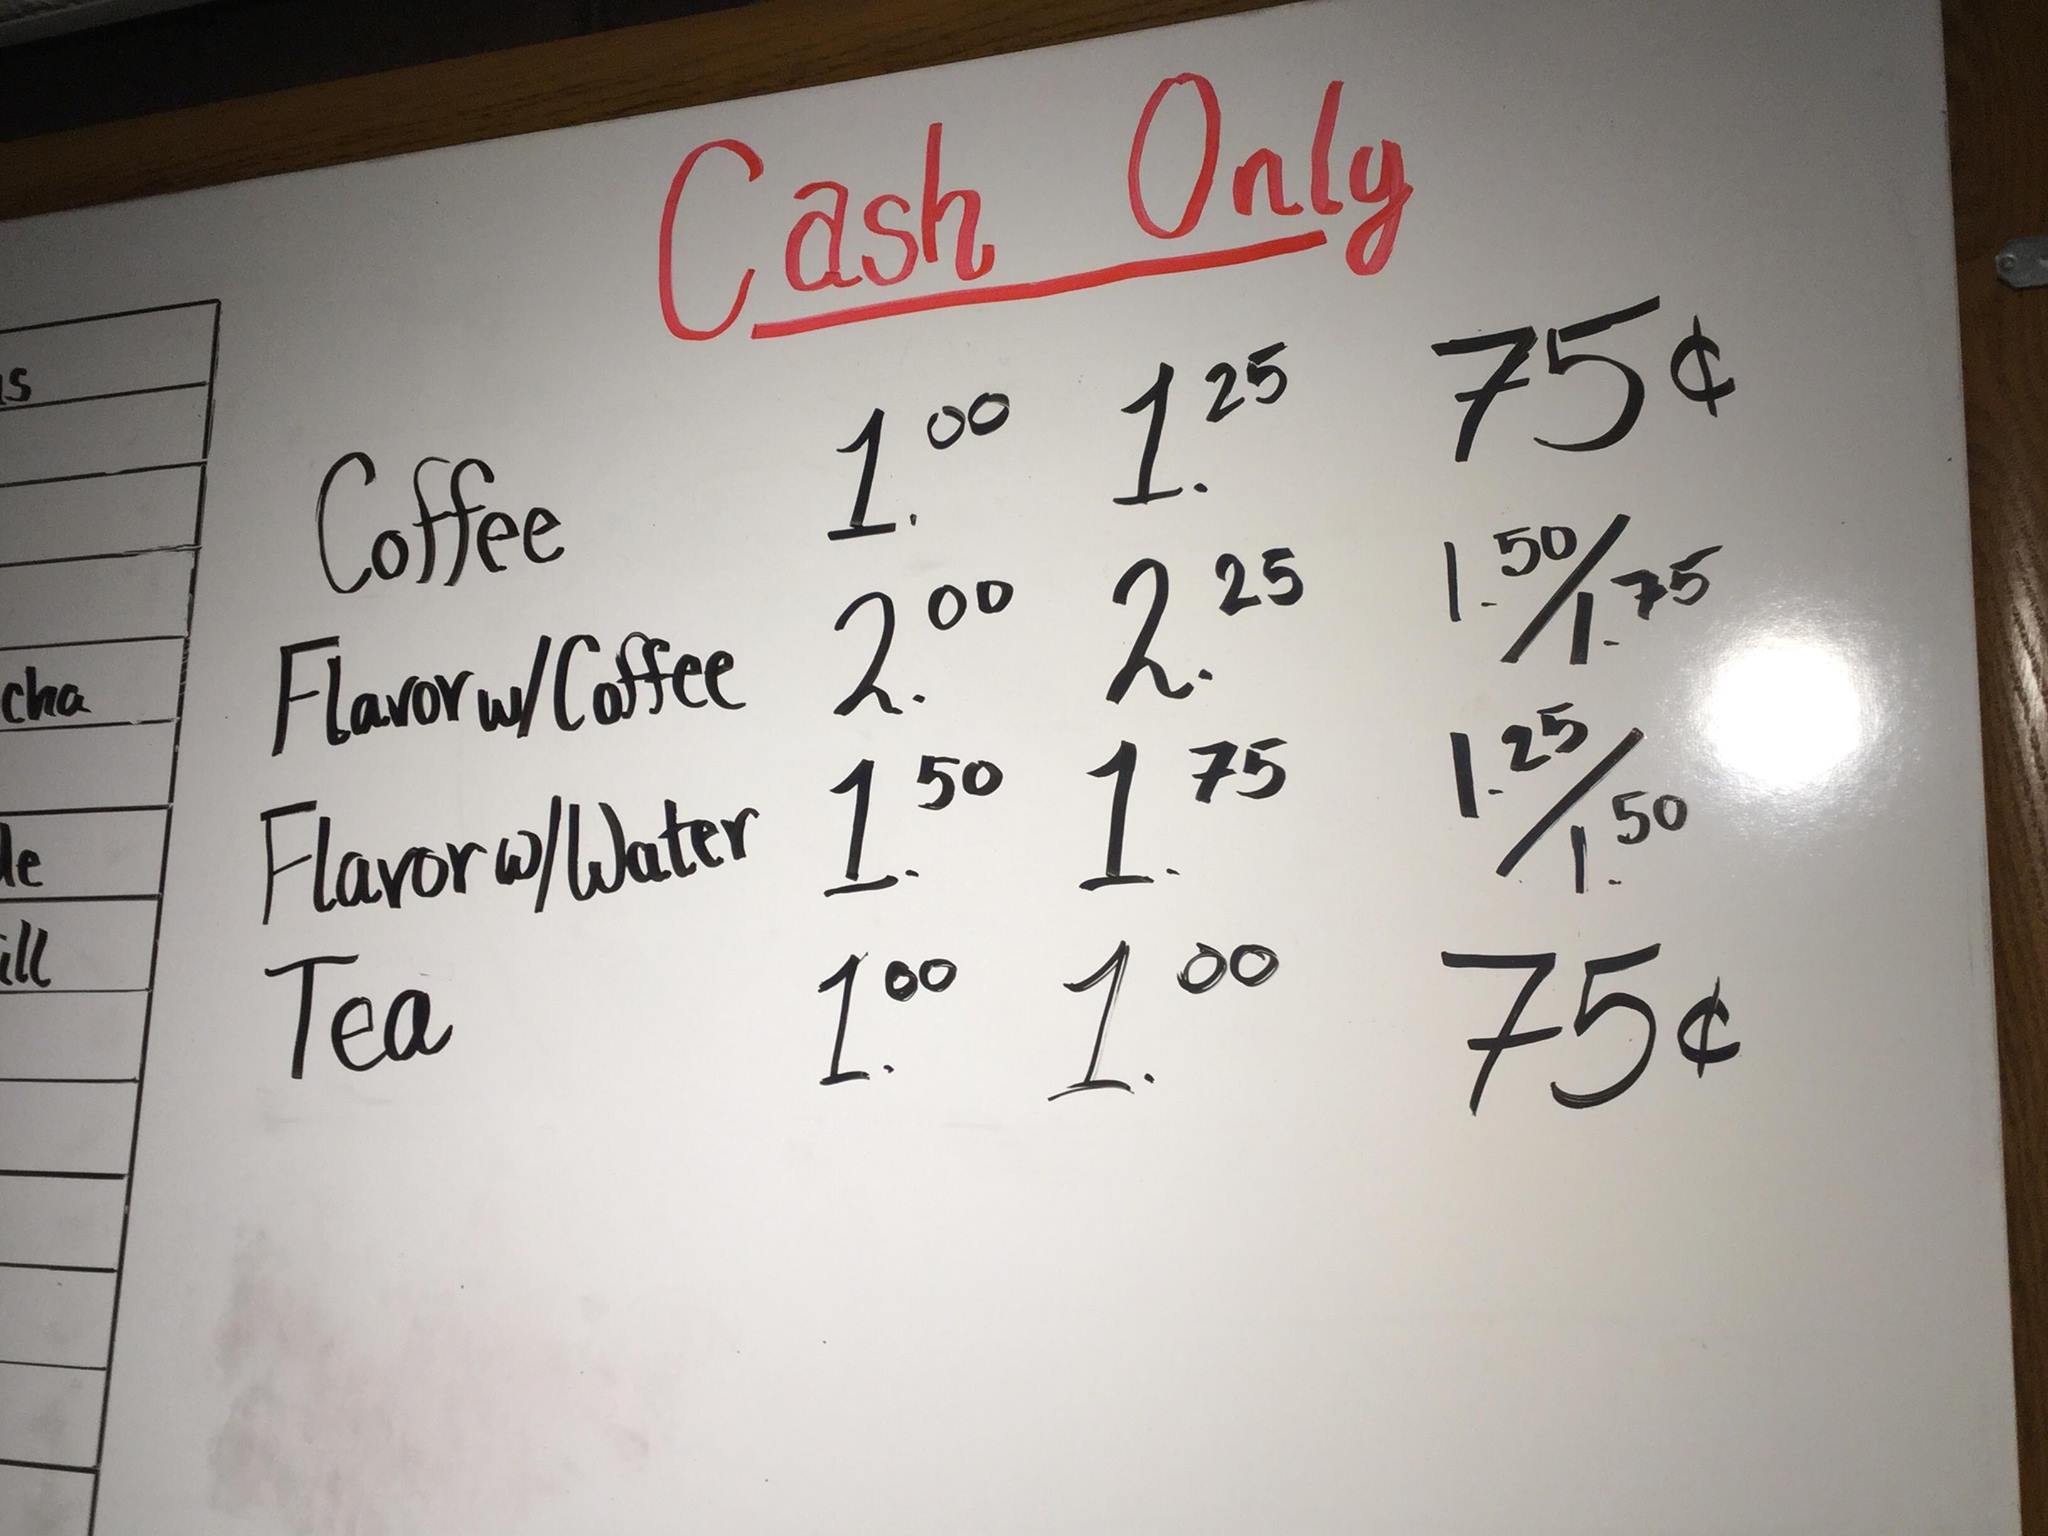 Cash Only
Coffee 1.00 1.25 75¢
Flavor w/Coffee 2.00 2.25 1.50/1.75
Flavor w/Water 1.50 1.75 1.25/1.50
Tea 1.00 1.00 75¢
cha
ill